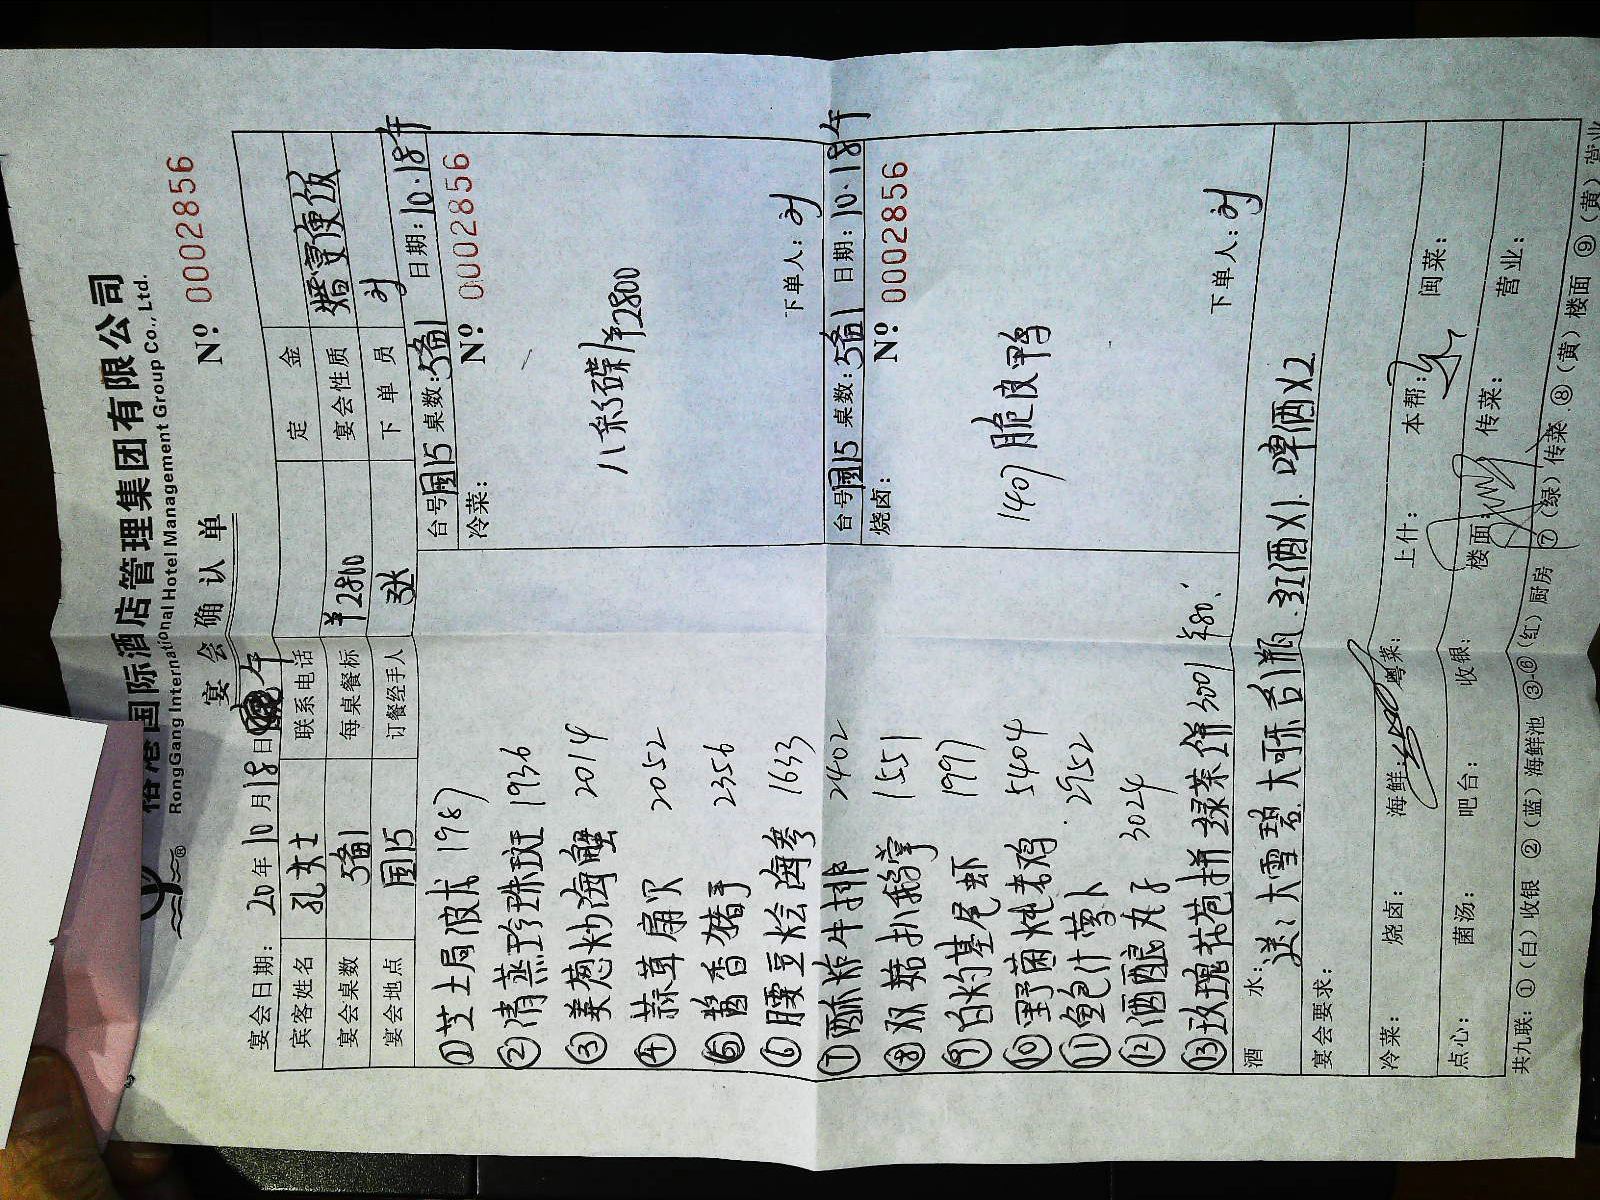 国际酒店管理集团有限公司
RongGang International Hotel Management Group Co., Ltd.
宴会确认单
Nº: 0002856
宴会日期: 20 年 10 月 18 日 午
定金
宾客姓名 孔女士 联系电话
宴会桌数 5备1 每桌餐标 ¥2800 宴会性质 婚宴便饭
宴会地点 国15 订餐经手人 张 下单员 刘
台号 国15 桌数: 5备1 日期: 10.18午
冷菜: Nº: 0002856
八彩碟 ¥2800
下单人: 刘
台号 国15 桌数: 5备1 日期: 10.18午
烧卤: Nº: 0002856
1407 脆皮鸭
下单人: 刘
①芝士局波龙 1987
②清蒸珍珠斑 1936
③姜葱炒海蟹 2014
④蒜茸扇贝 2052
⑤酱香猪手 2356
⑥腰豆烩海参 1633
⑦酥炸牛排 2402
⑧双菇扒鹅掌 1551
⑨白灼基尾虾 1997
⑩野菌炖老鸡 5404
⑪鲍汁萝卜 2952
⑫酒酿丸子 3024
⑬玫瑰花苞拼绿茶饼 3001 ¥80.
酒水: 送: 大雪碧.大可乐各1瓶.红酒X1.啤酒X2
宴会要求:
冷菜: 烧卤: 海鲜: 粤菜: 上什: 本帮: 闽菜:
点心: 菌汤: 吧台: 收银: 楼面: 传菜: 营业:
共九联: ①(白)收银 ②(蓝)海鲜池 ③-⑥(红)厨房 ⑦(绿)传菜 ⑧(黄)楼面 ⑨(黄)营业